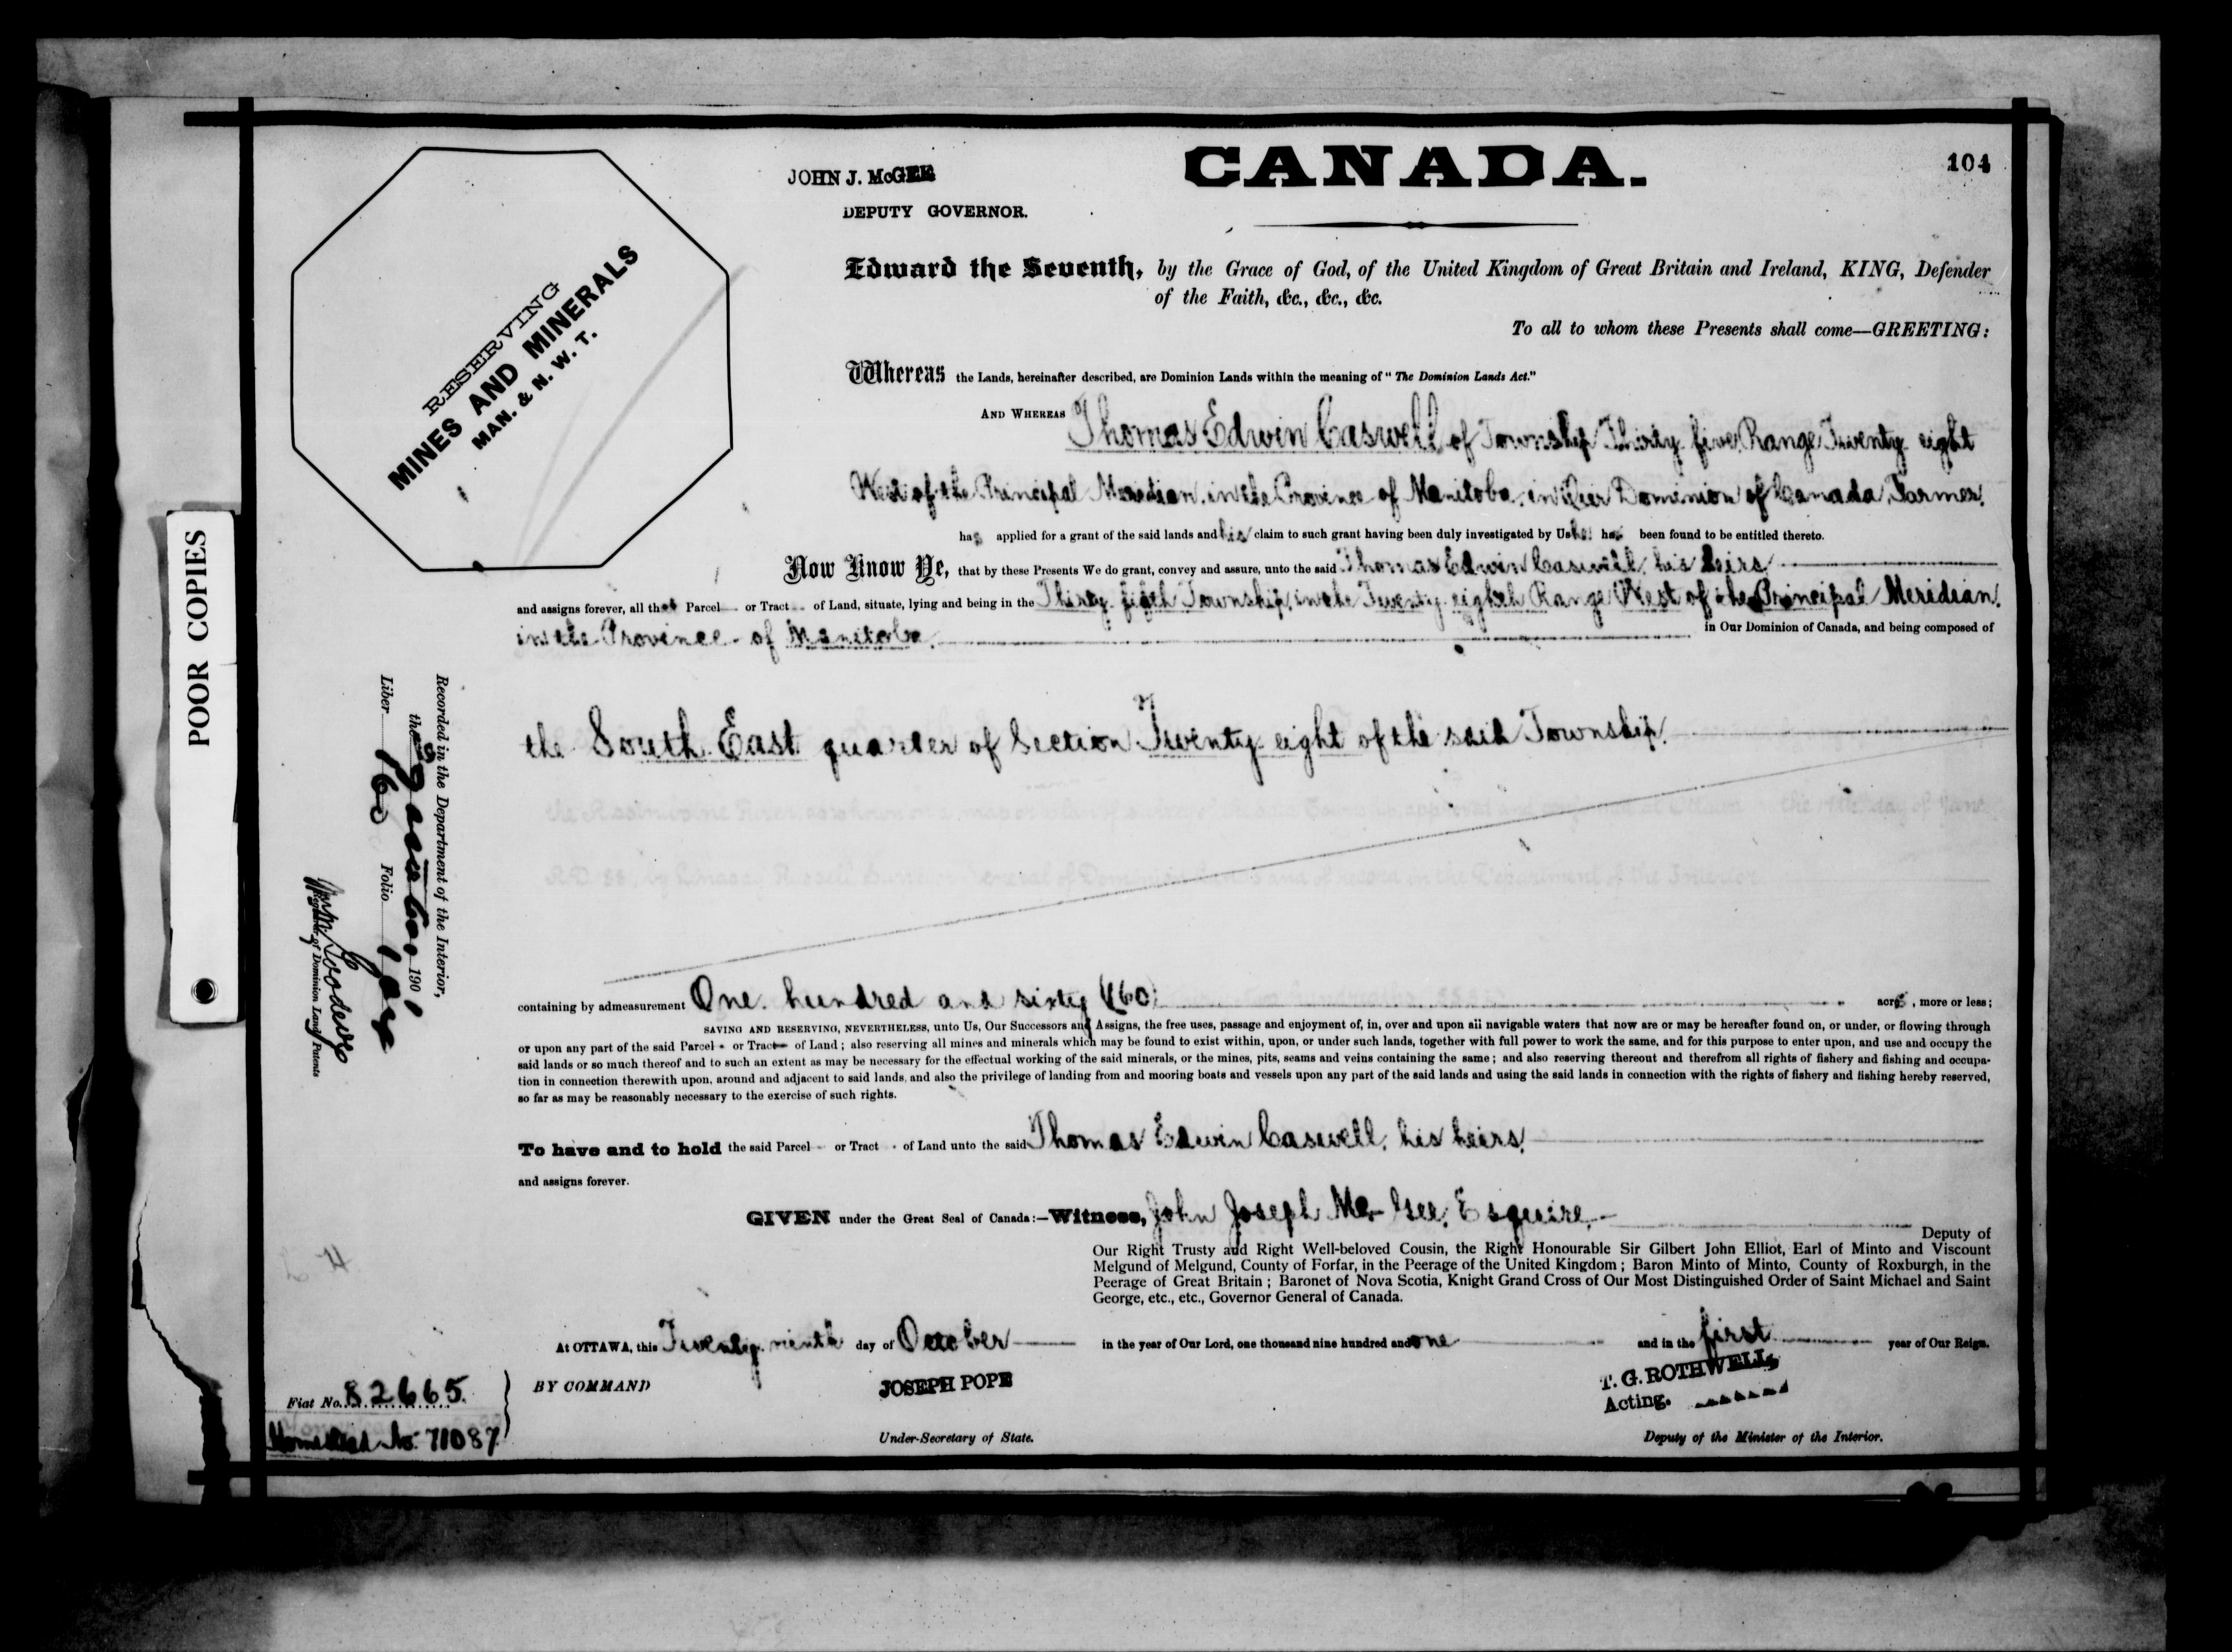 CANADA.
104
JOHN J. McGEE
DEPUTY GOVERNOR.
RESERVING
MINES AND MINERALS
MAN. & N. W. T.
Edward the Seventh, by the Grace of God, of the United Kingdom of Great Britain and Ireland, KING, Defender
of the Faith, &c., &c., &c.
To all to whom these Presents shall come—GREETING:
Whereas the Lands, hereinafter described, are Dominion Lands within the meaning of "The Dominion Lands Act."
AND WHEREAS Thomas Edwin Caswell of Township Thirty five Range Twenty eight
West of the Principal Meridian, in the Province of Manitoba, in Our Dominion of Canada, Farmer,
has applied for a grant of the said lands and his claim to such grant having been duly investigated by Us he has been found to be entitled thereto.
Now Know Ye, that by these Presents We do grant, convey and assure, unto the said Thomas Edwin Caswell, his heirs
and assigns forever, all that Parcel or Tract of Land, situate, lying and being in the Thirty fifth Township, in the Twenty eighth Range West of the Principal Meridian,
in the Province of Manitoba, in Our Dominion of Canada, and being composed of
the South East quarter of Section Twenty eight of the said Township,
containing by admeasurement One hundred and sixty (160) acres, more or less;
SAVING AND RESERVING, NEVERTHELESS, unto Us, Our Successors and Assigns, the free uses, passage and enjoyment of, in, over and upon all navigable waters that now are or may be hereafter found on, or under, or flowing through
or upon any part of the said Parcel or Tract of Land; also reserving all mines and minerals which may be found to exist within, upon, or under such lands, together with full power to work the same, and for this purpose to enter upon, and use and occupy the
said lands or so much thereof and to such an extent as may be necessary for the effectual working of the said minerals, or the mines, pits, seams and veins containing the same; and also reserving thereout and therefrom all rights of fishery and fishing and occupa-
tion in connection therewith upon, around and adjacent to said lands, and also the privilege of landing from and mooring boats and vessels upon any part of the said lands and using the said lands in connection with the rights of fishery and fishing hereby reserved,
so far as may be reasonably necessary to the exercise of such rights.
To have and to hold the said Parcel or Tract of Land unto the said Thomas Edwin Caswell, his heirs,
and assigns forever.
GIVEN under the Great Seal of Canada:—Witness, John Joseph McGee, Esquire, Deputy of
Our Right Trusty and Right Well-beloved Cousin, the Right Honourable Sir Gilbert John Elliot, Earl of Minto and Viscount
Melgund of Melgund, County of Forfar, in the Peerage of the United Kingdom; Baron Minto of Minto, County of Roxburgh, in the
Peerage of Great Britain; Baronet of Nova Scotia, Knight Grand Cross of Our Most Distinguished Order of Saint Michael and Saint
George, etc., etc., Governor General of Canada.
At OTTAWA, this Twenty ninth day of October in the year of Our Lord, one thousand nine hundred and one and in the first year of Our Reign.
BY COMMAND
JOSEPH POPE
Under-Secretary of State.
T. G. ROTHWELL,
Acting.
Deputy of the Minister of the Interior.
Fiat No. 82665
Homestead No. 71087
Recorded in the Department of the Interior,
the 8 November 1901
Liber 160 Folio 104
Register of Dominion Land Patents
POOR COPIES